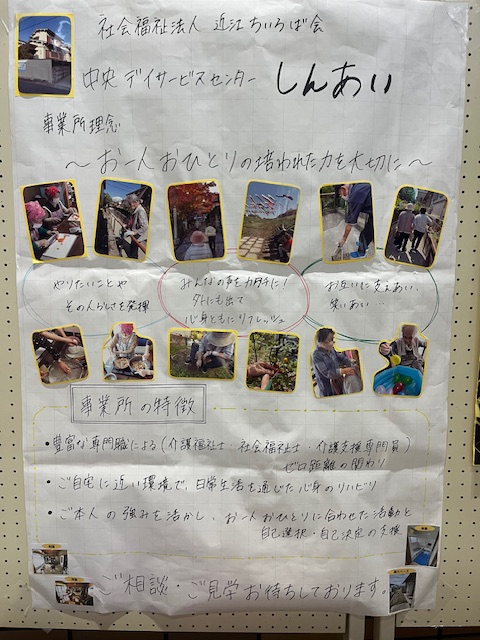 社会福祉法人 近江ちいろば会
中央デイサービスセンター しんあい
事業所理念
～お一人おひとりの培われた力を大切に～
やりたいことや
その人らしさを発揮
みんなの声をカタチに!
外にも出て
心身ともにリフレッシュ
お互いに支えあい、
笑いあい…
事業所の特徴
・豊富な専門職による(介護福祉士・社会福祉士・介護支援専門員)
ゼロ距離の関わり
・ご自宅に近い環境で、日常生活を通じた心身のリハビリ
・ご本人の強みを活かし、お一人おひとりに合わせた活動と
自己選択・自己決定の支援
ご相談・ご見学お待ちしております。